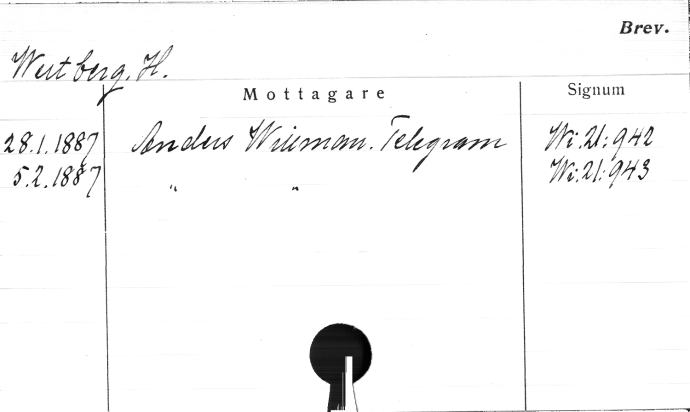 Brev.
Westberg. H.
Mottagare Signum
28.1.1887 Anders Wiiman. Telegram Wi.21:942
5.2.1887 " " Wi.21:943